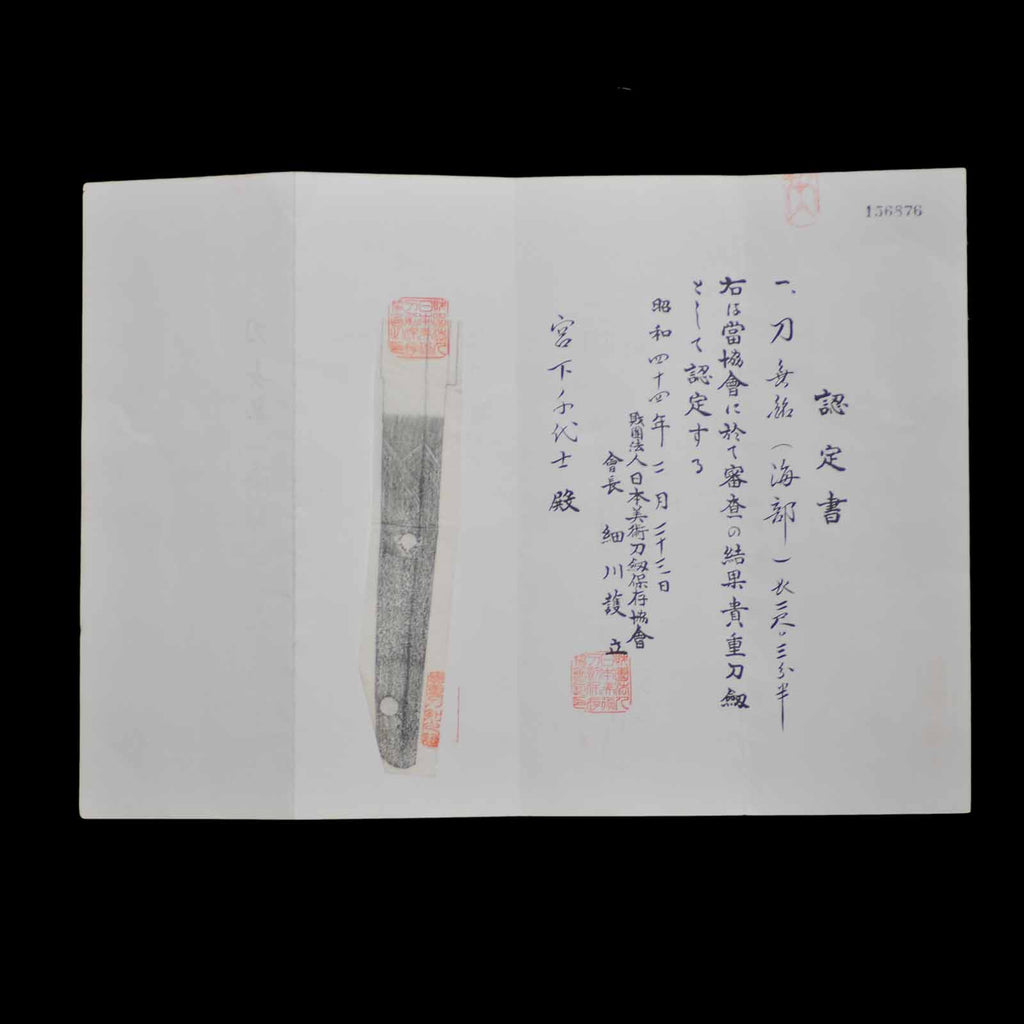 156876
認定書
一、刀 無銘（海部）長二尺〇三分半
右は當協會に於て審査の結果貴重刀劔
として認定する
昭和四十四年二月二十三日
財団法人日本美術刀劔保存協會
會長 細川護立
宮下千代士殿